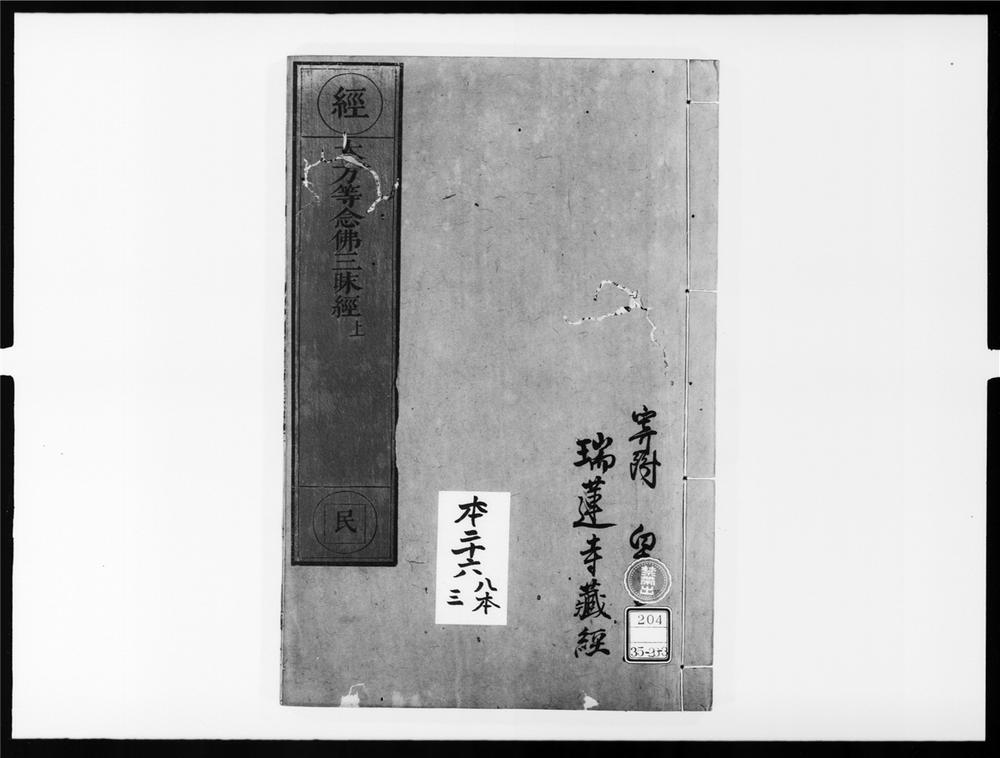 經
大方等念佛三昧經上
民
寄附
瑞蓮寺藏經
本二十六
八本
三
禁帶出
204